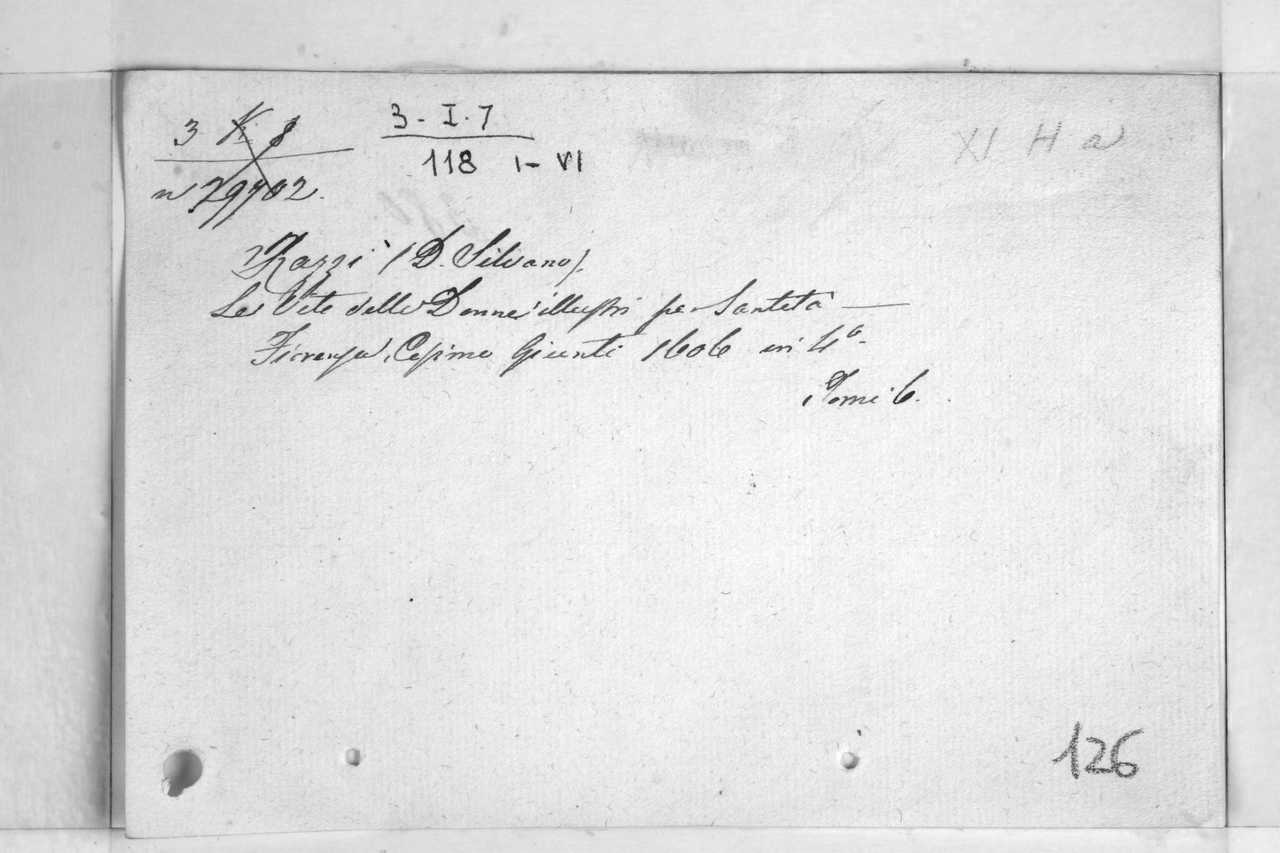 3 K 8
n 29702.
3 - I. 7
118 I - VI
XI H a
Razzi (D. Silvano).
Le Vite delle Donne illustri per Santità —
Firenze, Cosimo Giunti 1606 in 4°.
Tomi 6.
126